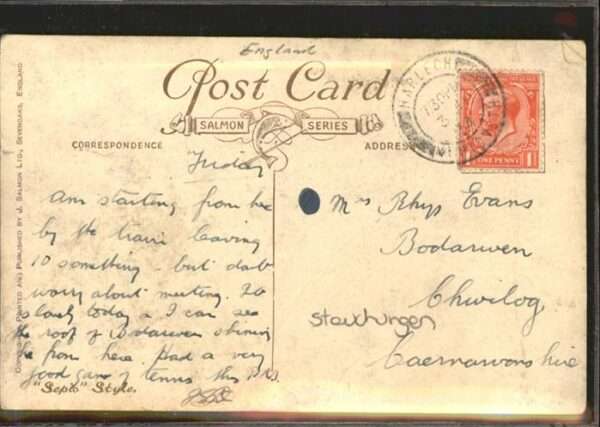 England
Post Card
SALMON SERIES
CORRESPONDENCE
ADDRESS
HARLECH
ONE PENNY
1
PRINTED AND PUBLISHED BY J. SALMON LTD., SEVENOAKS, ENGLAND
Friday
Am starting from here
by the train leaving
10 something - but don't
worry about meeting. It
clear today & I can see
the roof of Bodarwen shining
from here. Had a very
good game of tennis this
"Sepio" Style.
Mrs Rhys Evans
Bodarwen
Chwilog
Caernarvonshire